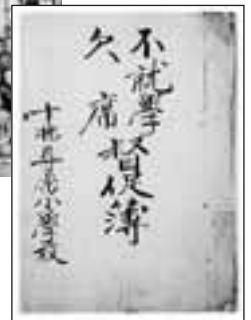 不就學
欠席
督促簿
十弗尋常小學校